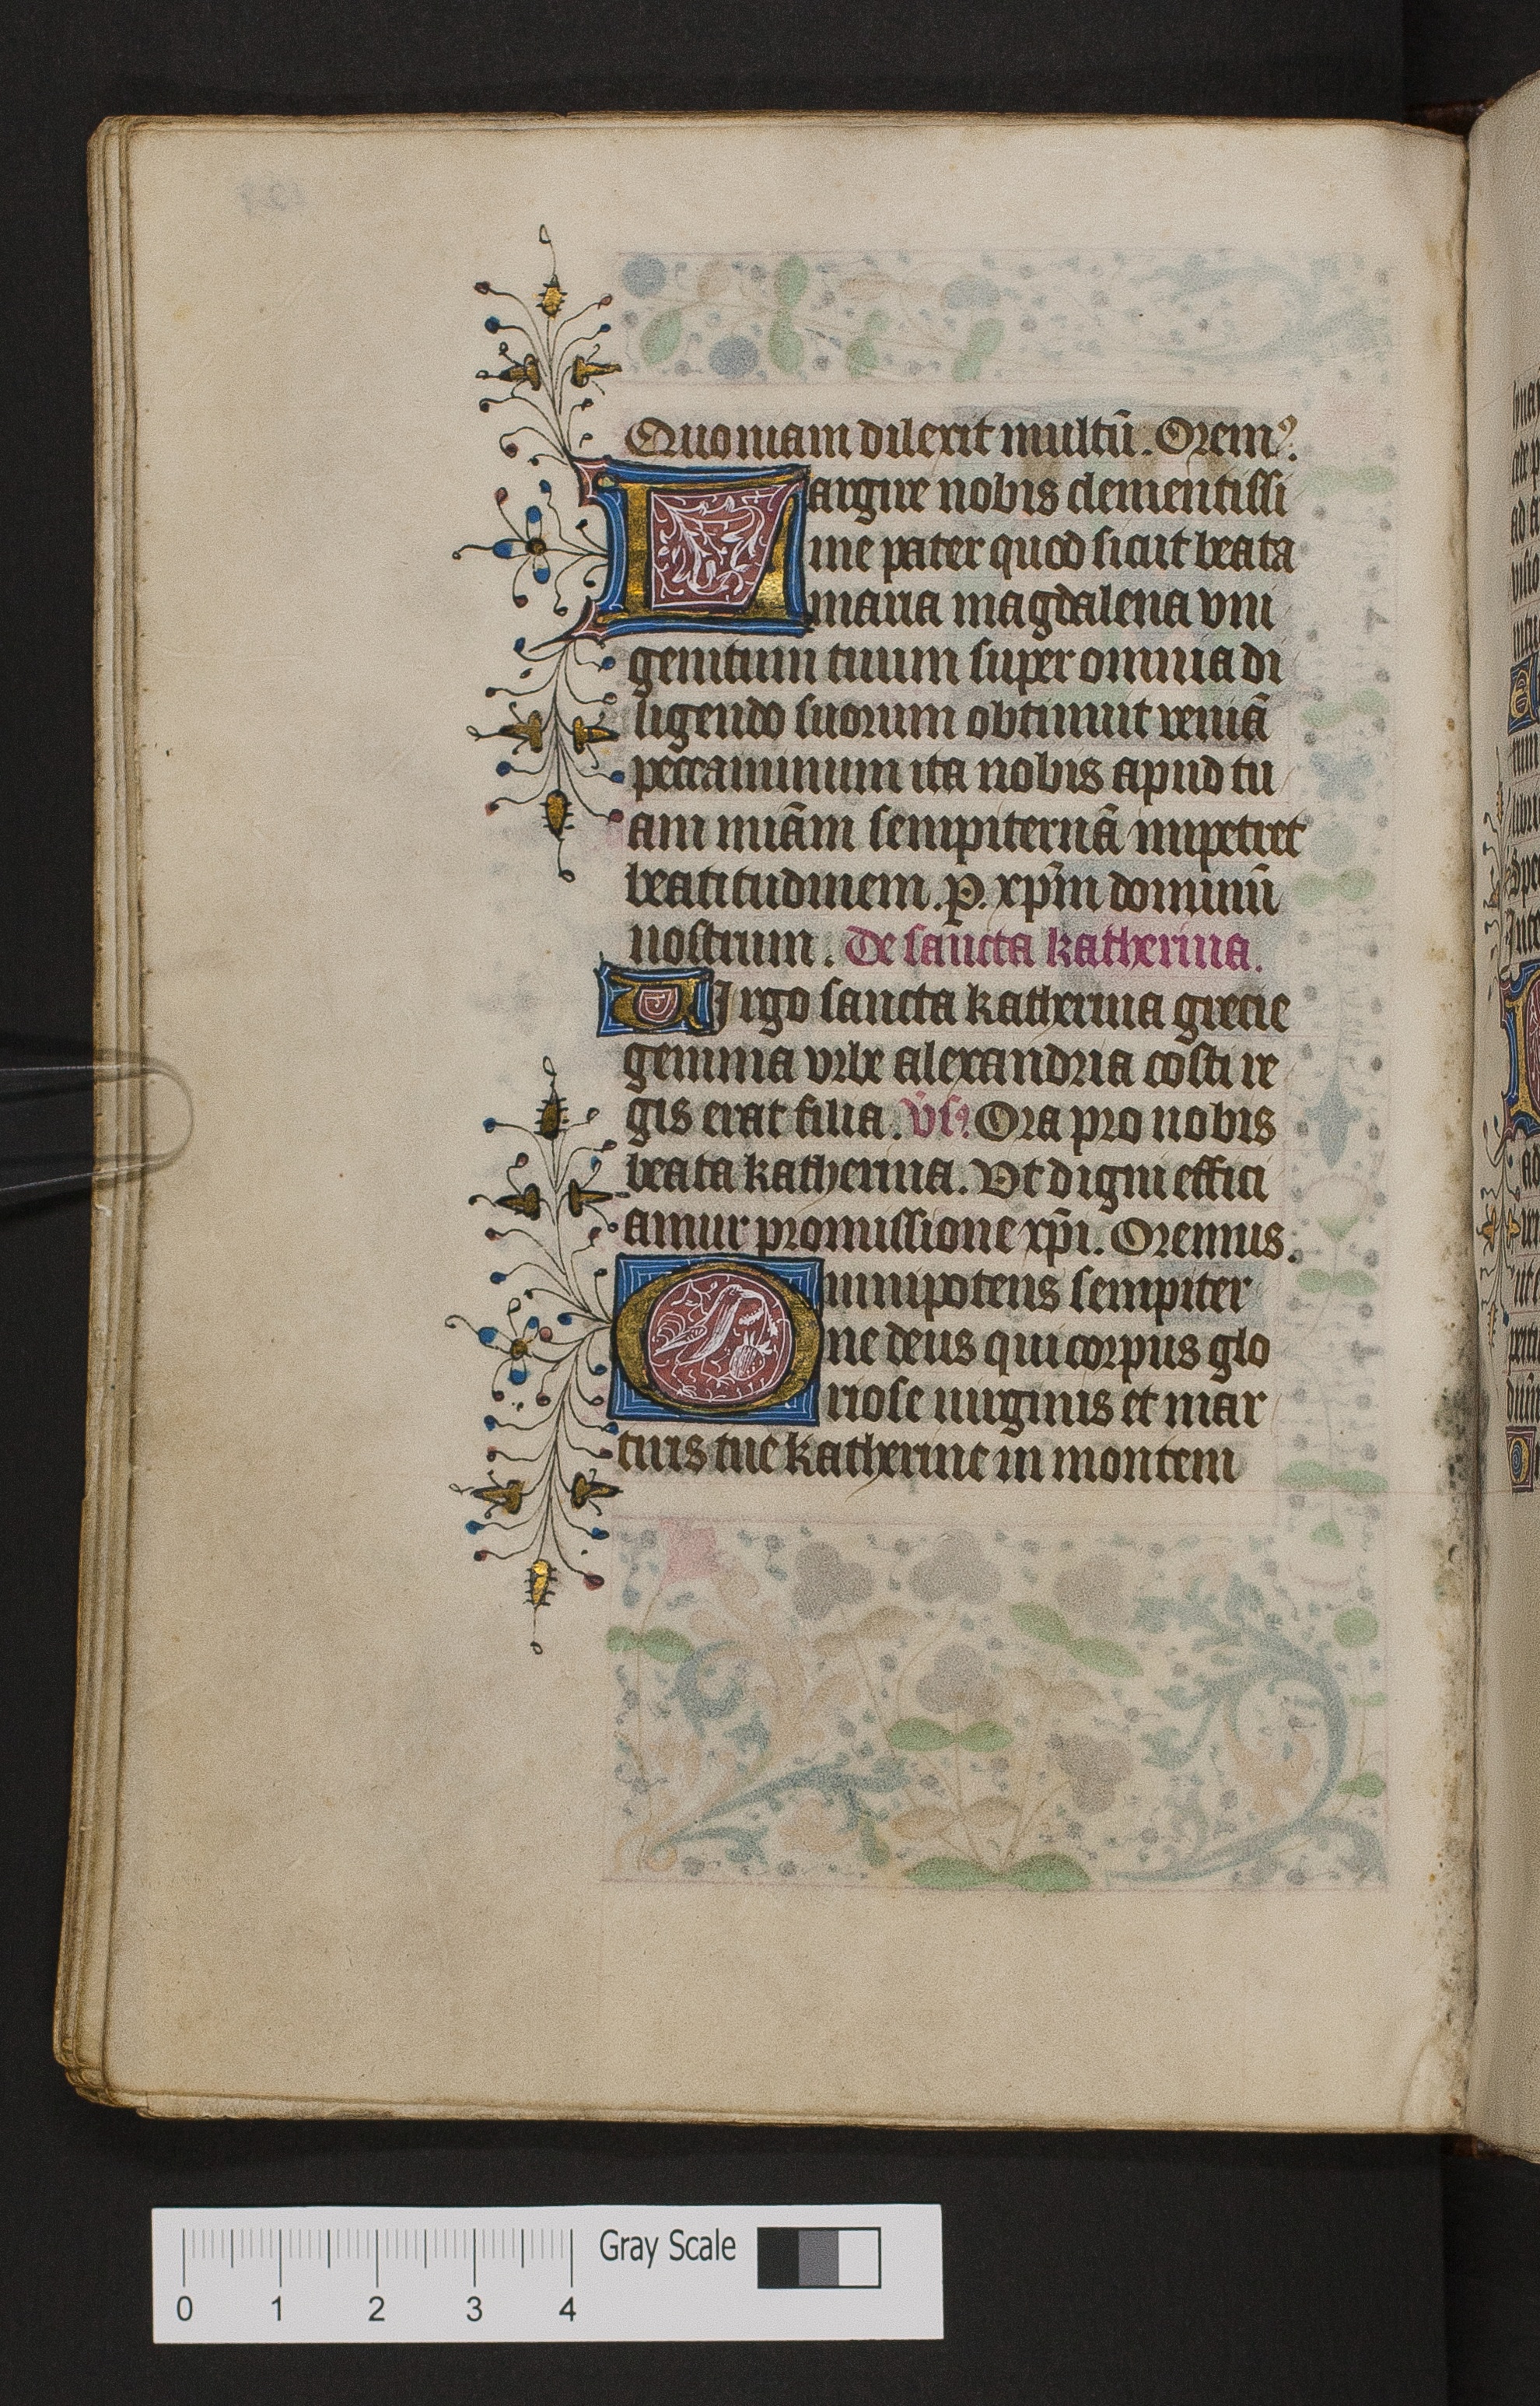 Quoniam dilexit multū. Orem⁹.
Largire nobis clementissi
me pater quod sicut beata
maria magdalena vni
genitum tuum super omnia di
ligendo suorum obtinuit veniā
peccaminum ita nobis apud tu
am miām sempiternā impetret
beatitudinem. P. xp̄m dominū
nostrum. De sancta katherina.
VIrgo sancta katherina grecie
gemma vrbe alexandria costi re
gis erat filia. v̄s. Ora pro nobis
beata katherina. Vt digni effici
amur promissione xp̄i. Oremus.
Omnipotens sempiter
ne deus qui corpus glo
riose uirginis et mar
tiris tue katherine in montem
Gray Scale
0 1 2 3 4